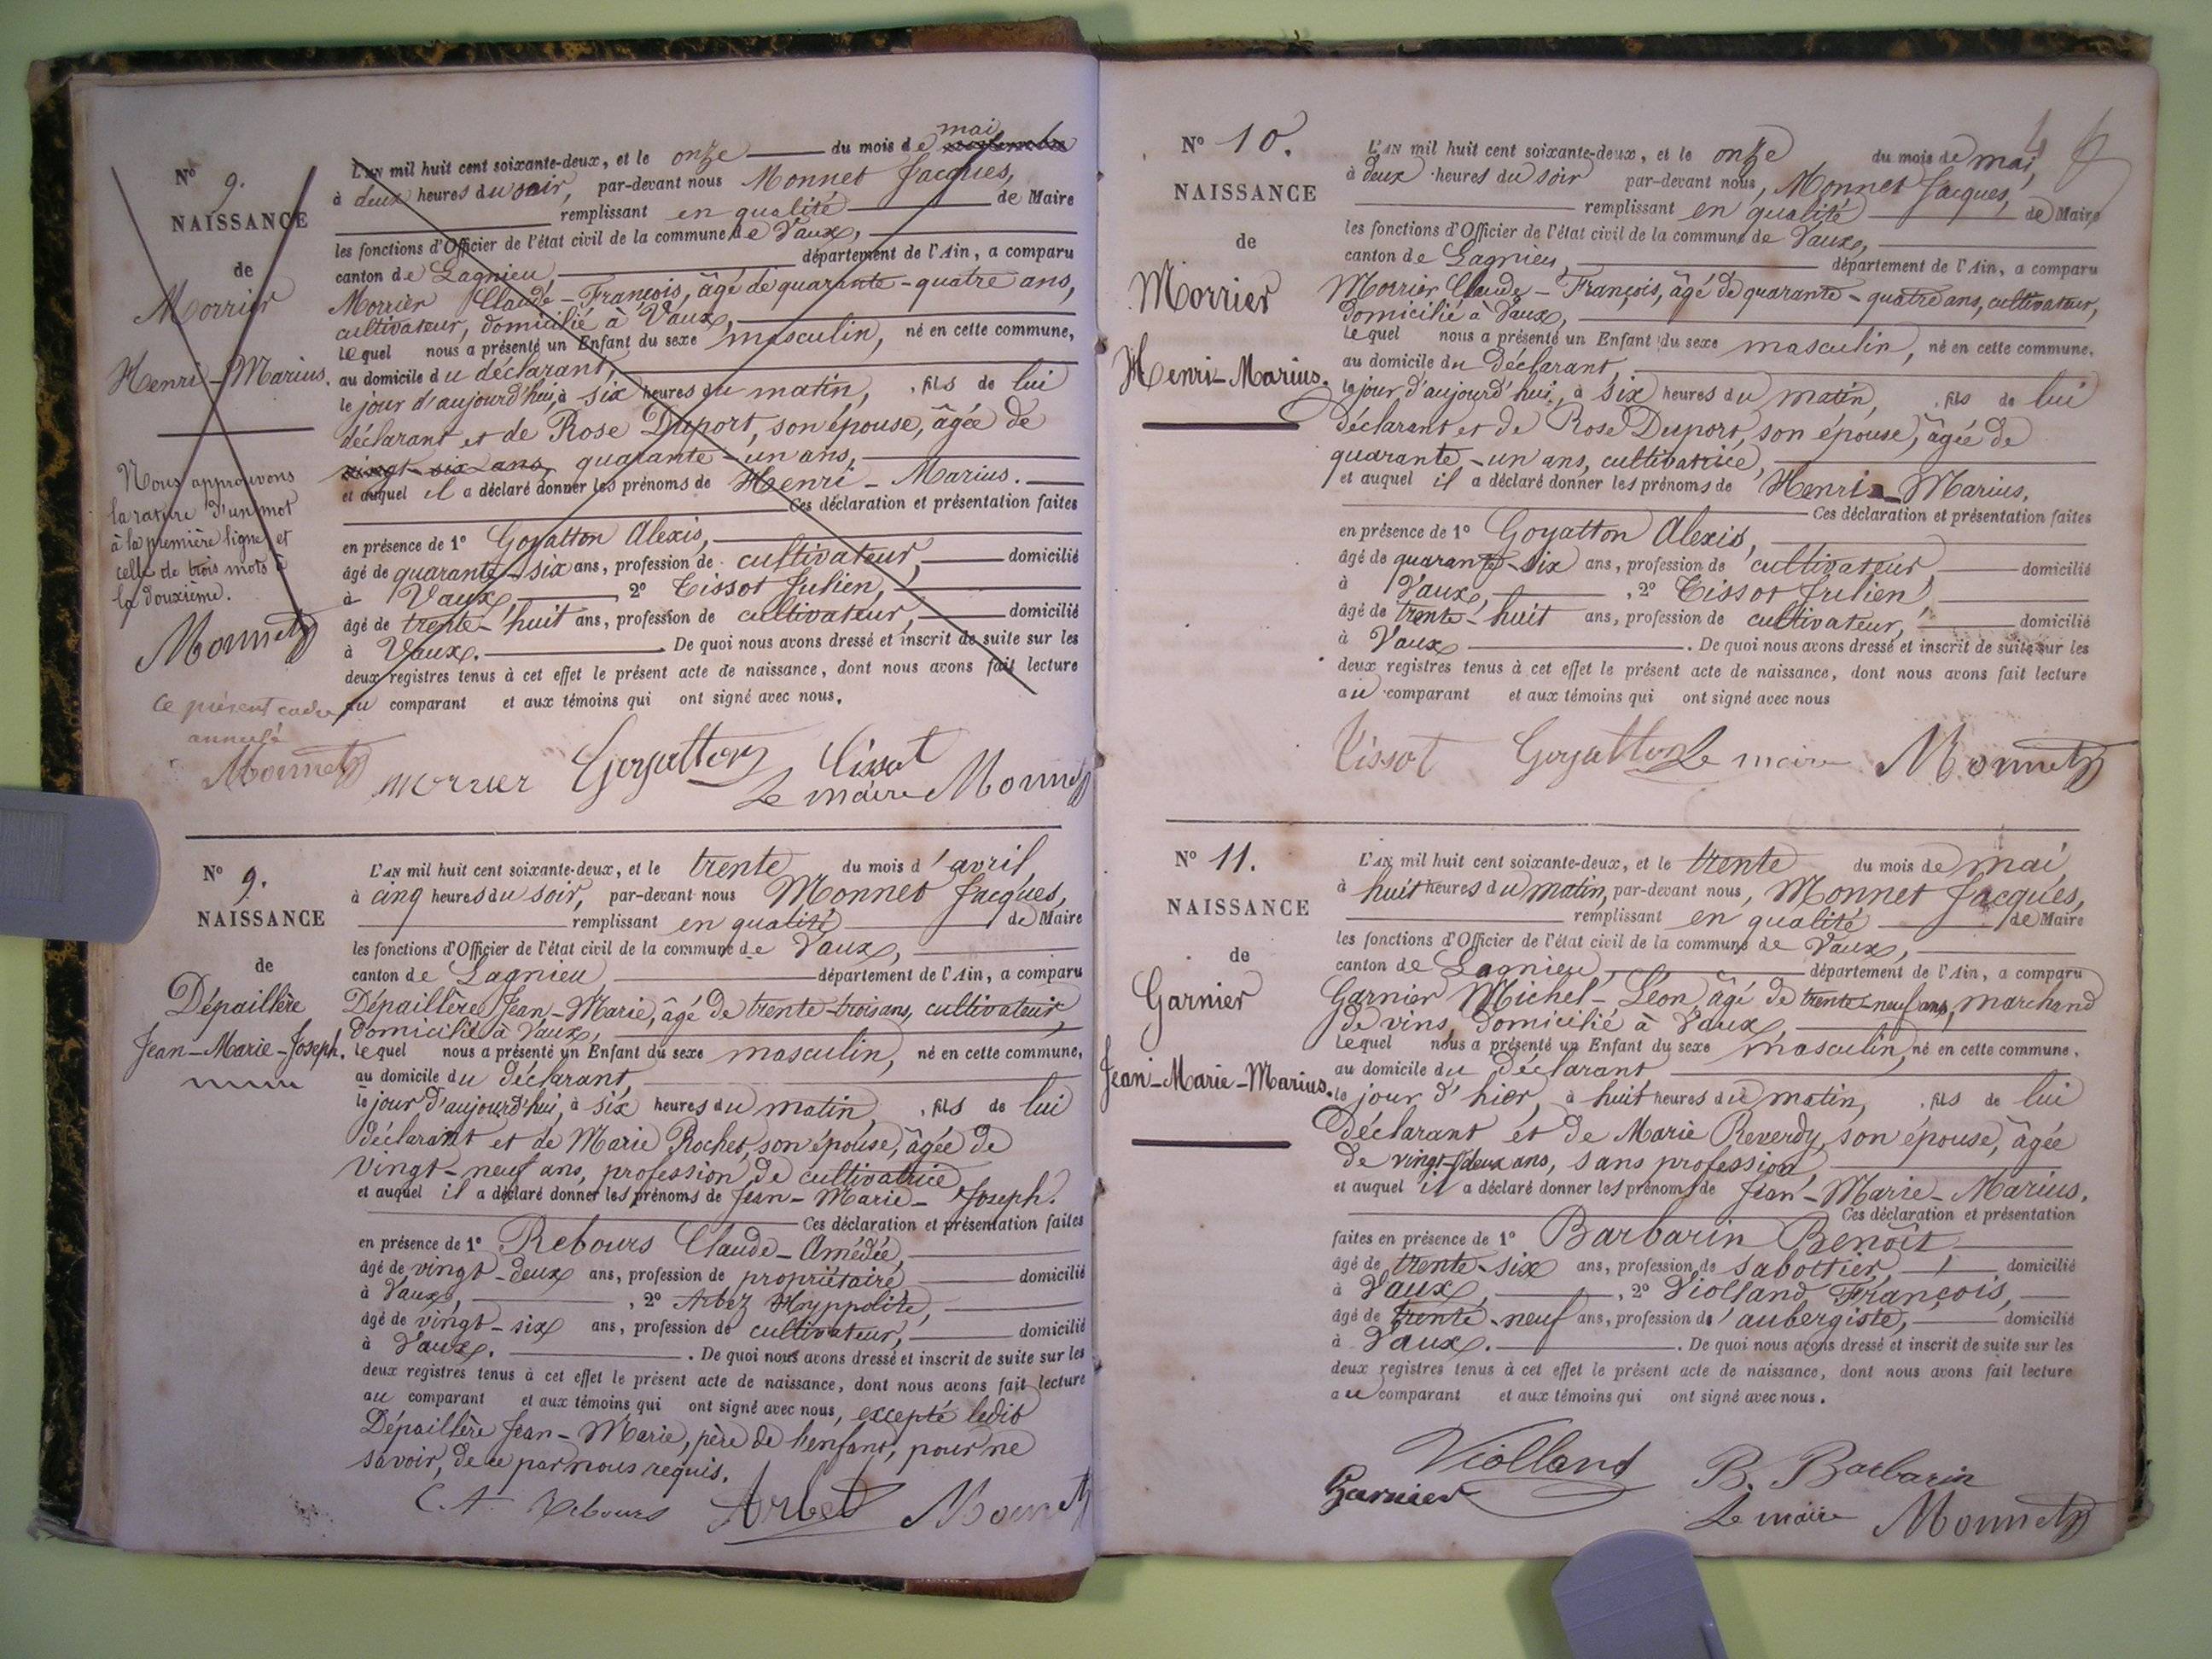 N° 9.
NAISSANCE
de
Morrier
Henri-Marius.
Nous approuvons
la rature d'un mot
à la première ligne et
celle de trois mots à
la douxième.
Monnet
Ce présent cadre
annulé
Monnet
L'AN mil huit cent soixante-deux, et le onze du mois de mai
à deux heures du soir, par-devant nous Monnet Jacques,
remplissant en qualité de Maire
les fonctions d'Officier de l'état civil de la commune de Vaux,
canton de Lagnieu, département de l'Ain, a comparu
Morrier Claude-François, âgé de quarante-quatre ans,
cultivateur, domicilié à Vaux,
lequel nous a présenté un Enfant du sexe masculin, né en cette commune,
au domicile du déclarant,
le jour d'aujourd'hui, à six heures du matin, fils de lui
déclarant et de Rose Duport, son épouse, âgée de
vingt-six ans, quarante-un ans,
et auquel il a déclaré donner les prénoms de Henri-Marius.
Ces déclaration et présentation faites
en présence de 1° Goyatton Alexis,
âgé de quarante-six ans, profession de cultivateur, domicilié
à Vaux, 2° Tissot Julien,
âgé de trente-huit ans, profession de cultivateur, domicilié
à Vaux. De quoi nous avons dressé et inscrit de suite sur les
deux registres tenus à cet effet le présent acte de naissance, dont nous avons fait lecture
au comparant et aux témoins qui ont signé avec nous.
Morrier Goyatton Tissot
Le maire Monnet
N° 9.
NAISSANCE
de
Dépaillère
Jean-Marie-Joseph.
L'AN mil huit cent soixante-deux, et le trente du mois d'avril,
à cinq heures du soir, par-devant nous Monnet Jacques,
remplissant en qualité de Maire
les fonctions d'Officier de l'état civil de la commune de Vaux,
canton de Lagnieu, département de l'Ain, a comparu
Dépaillère Jean-Marie, âgé de trente-trois ans, cultivateur
domicilié à Vaux,
lequel nous a présenté un Enfant du sexe masculin, né en cette commune,
au domicile du déclarant,
le jour d'aujourd'hui, à six heures du matin, fils de lui
déclarant et de Marie Rochet, son épouse, âgée de
vingt-neuf ans, profession de cultivatrice
et auquel il a déclaré donner les prénoms de Jean-Marie-Joseph.
Ces déclaration et présentation faites
en présence de 1° Rebours Claude-Amédée,
âgé de vingt-deux ans, profession de propriétaire, domicilié
à Vaux, 2° Arbez Hyppolite,
âgé de vingt-six ans, profession de cultivateur, domicilié
à Vaux. De quoi nous avons dressé et inscrit de suite sur les
deux registres tenus à cet effet le présent acte de naissance, dont nous avons fait lecture
au comparant et aux témoins qui ont signé avec nous, excepté ledit
Dépaillère Jean-Marie, père de l'enfant, pour ne
savoir, de ce par nous requis.
C. A. Rebours Arbet Monnet
N° 10.
NAISSANCE
de
Morrier
Henri-Marius.
L'AN mil huit cent soixante-deux, et le onze du mois de mai,
à deux heures du soir par-devant nous, Monnet Jacques,
remplissant en qualité de Maire
les fonctions d'Officier de l'état civil de la commune de Vaux,
canton de Lagnieu, département de l'Ain, a comparu
Morrier Claude-François, âgé de quarante-quatre ans, cultivateur,
domicilié à Vaux,
lequel nous a présenté un Enfant du sexe masculin, né en cette commune,
au domicile du déclarant,
le jour d'aujourd'hui, à six heures du matin, fils de lui
déclarant et de Rose Duport, son épouse, âgée de
quarante-un ans, cultivatrice,
et auquel il a déclaré donner les prénoms de Henri-Marius.
Ces déclaration et présentation faites
en présence de 1° Goyatton Alexis,
âgé de quarante-six ans, profession de cultivateur, domicilié
à Vaux, 2° Tissot Julien,
âgé de trente-huit ans, profession de cultivateur, domicilié
à Vaux. De quoi nous avons dressé et inscrit de suite sur les
deux registres tenus à cet effet le présent acte de naissance, dont nous avons fait lecture
au comparant et aux témoins qui ont signé avec nous
Tissot Goyatton Le maire Monnet
N° 11.
NAISSANCE
de
Garnier
Jean-Marie-Marius.
L'AN mil huit cent soixante-deux, et le trente du mois de mai
à huit heures du matin, par-devant nous, Monnet Jacques,
remplissant en qualité de Maire
les fonctions d'Officier de l'état civil de la commune de Vaux,
canton de Lagnieu, département de l'Ain, a comparu
Garnier Michel-Léon, âgé de trente-neuf ans, marchand
de vins, domicilié à Vaux,
lequel nous a présenté un Enfant du sexe masculin, né en cette commune,
au domicile du déclarant
le jour d'hier, à huit heures du matin, fils de lui
déclarant et de Marie Reverdy, son épouse, âgée
de vingt-deux ans, sans profession,
et auquel il a déclaré donner les prénoms de Jean-Marie-Marius.
Ces déclaration et présentation
faites en présence de 1° Barbarin Benoît
âgé de trente-six ans, profession de sabottier, domicilié
à Vaux, 2° Violland François,
âgé de trente-neuf ans, profession d'aubergiste, domicilié
à Vaux. De quoi nous avons dressé et inscrit de suite sur les
deux registres tenus à cet effet le présent acte de naissance, dont nous avons fait lecture
au comparant et aux témoins qui ont signé avec nous.
Violland B. Barbarin
Garnier Le maire Monnet